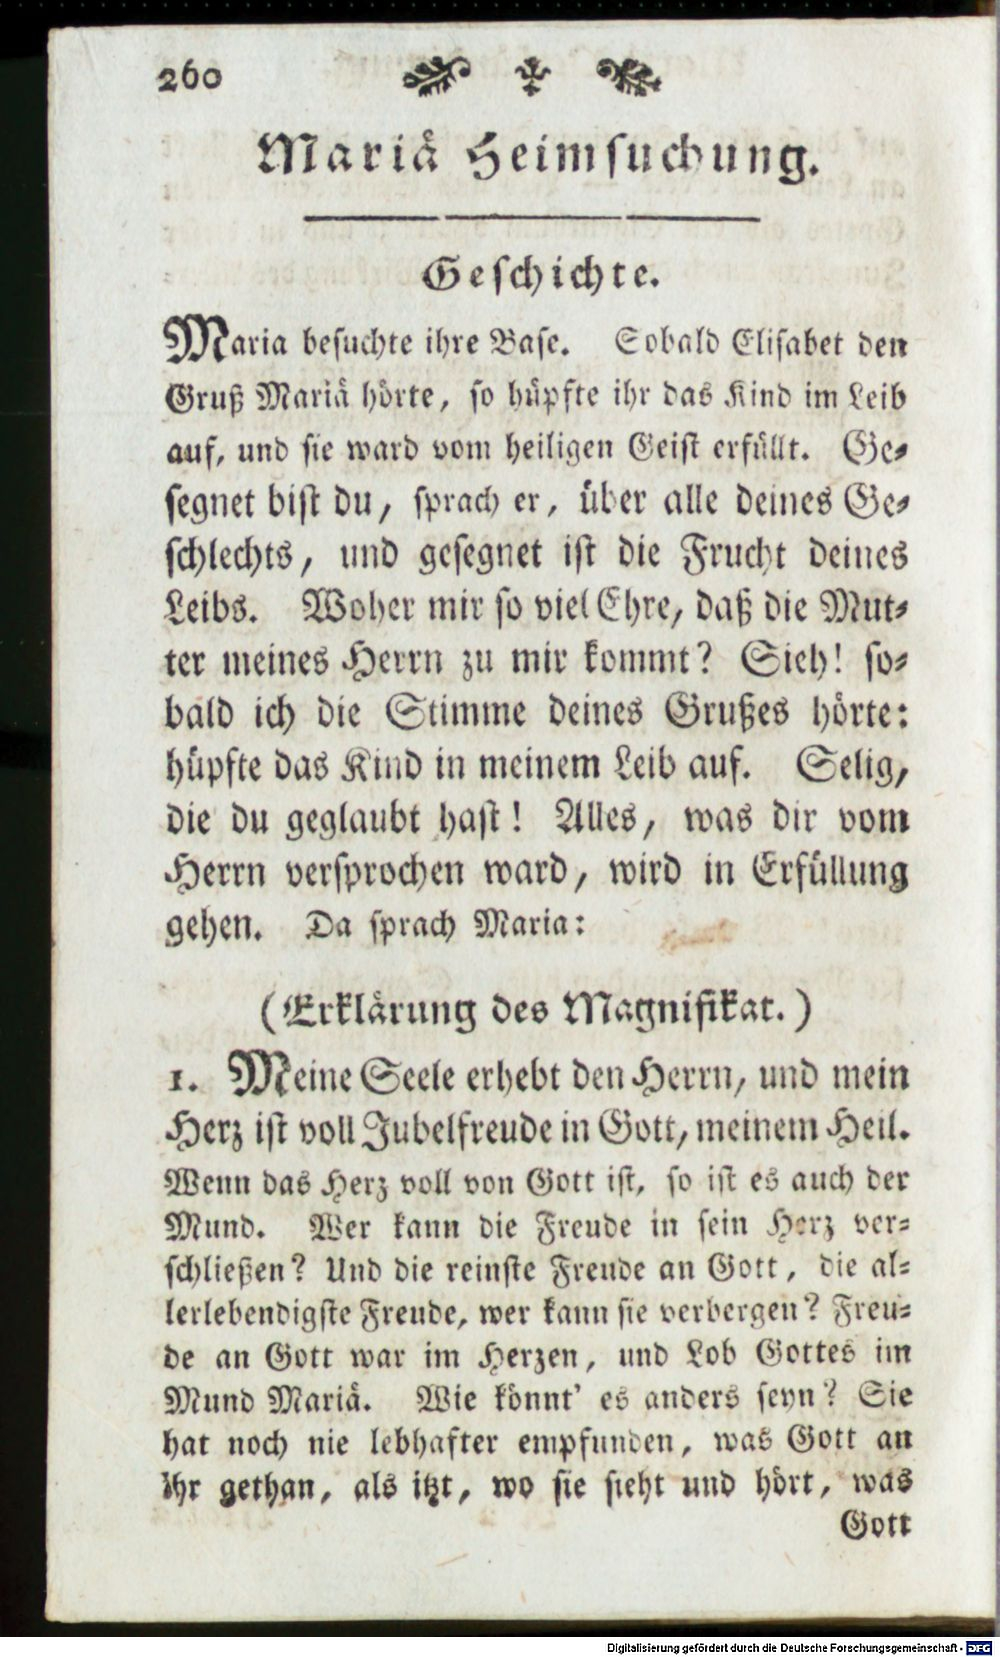 260
Mariä Heimsuchung.
Geschichte.
Maria besuchte ihre Base. Sobald Elisabet den
Gruß Mariä hörte, so hüpfte ihr das Kind im Leib
auf, und sie ward vom heiligen Geist erfüllt. Ge-
segnet bist du, sprach er, über alle deines Ge-
schlechts, und gesegnet ist die Frucht deines
Leibs. Woher mir so viel Ehre, daß die Mut-
ter meines Herrn zu mir kommt? Sieh! so-
bald ich die Stimme deines Grußes hörte:
hüpfte das Kind in meinem Leib auf. Selig,
die du geglaubt hast! Alles, was dir vom
Herrn versprochen ward, wird in Erfüllung
gehen. Da sprach Maria:
(Erklärung des Magnifikat.)
1. Meine Seele erhebt den Herrn, und mein
Herz ist voll Jubelfreude in Gott, meinem Heil.
Wenn das Herz voll von Gott ist, so ist es auch der
Mund. Wer kann die Freude in sein Herz ver-
schließen? Und die reinste Freude an Gott, die al-
lerlebendigste Freude, wer kann sie verbergen? Freu-
de an Gott war im Herzen, und Lob Gottes im
Mund Mariä. Wie könnt' es anders seyn? Sie
hat noch nie lebhafter empfunden, was Gott an
ihr gethan, als itzt, wo sie sieht und hört, was
Gott
Digitalisierung gefördert durch die Deutsche Forschungsgemeinschaft - DFG